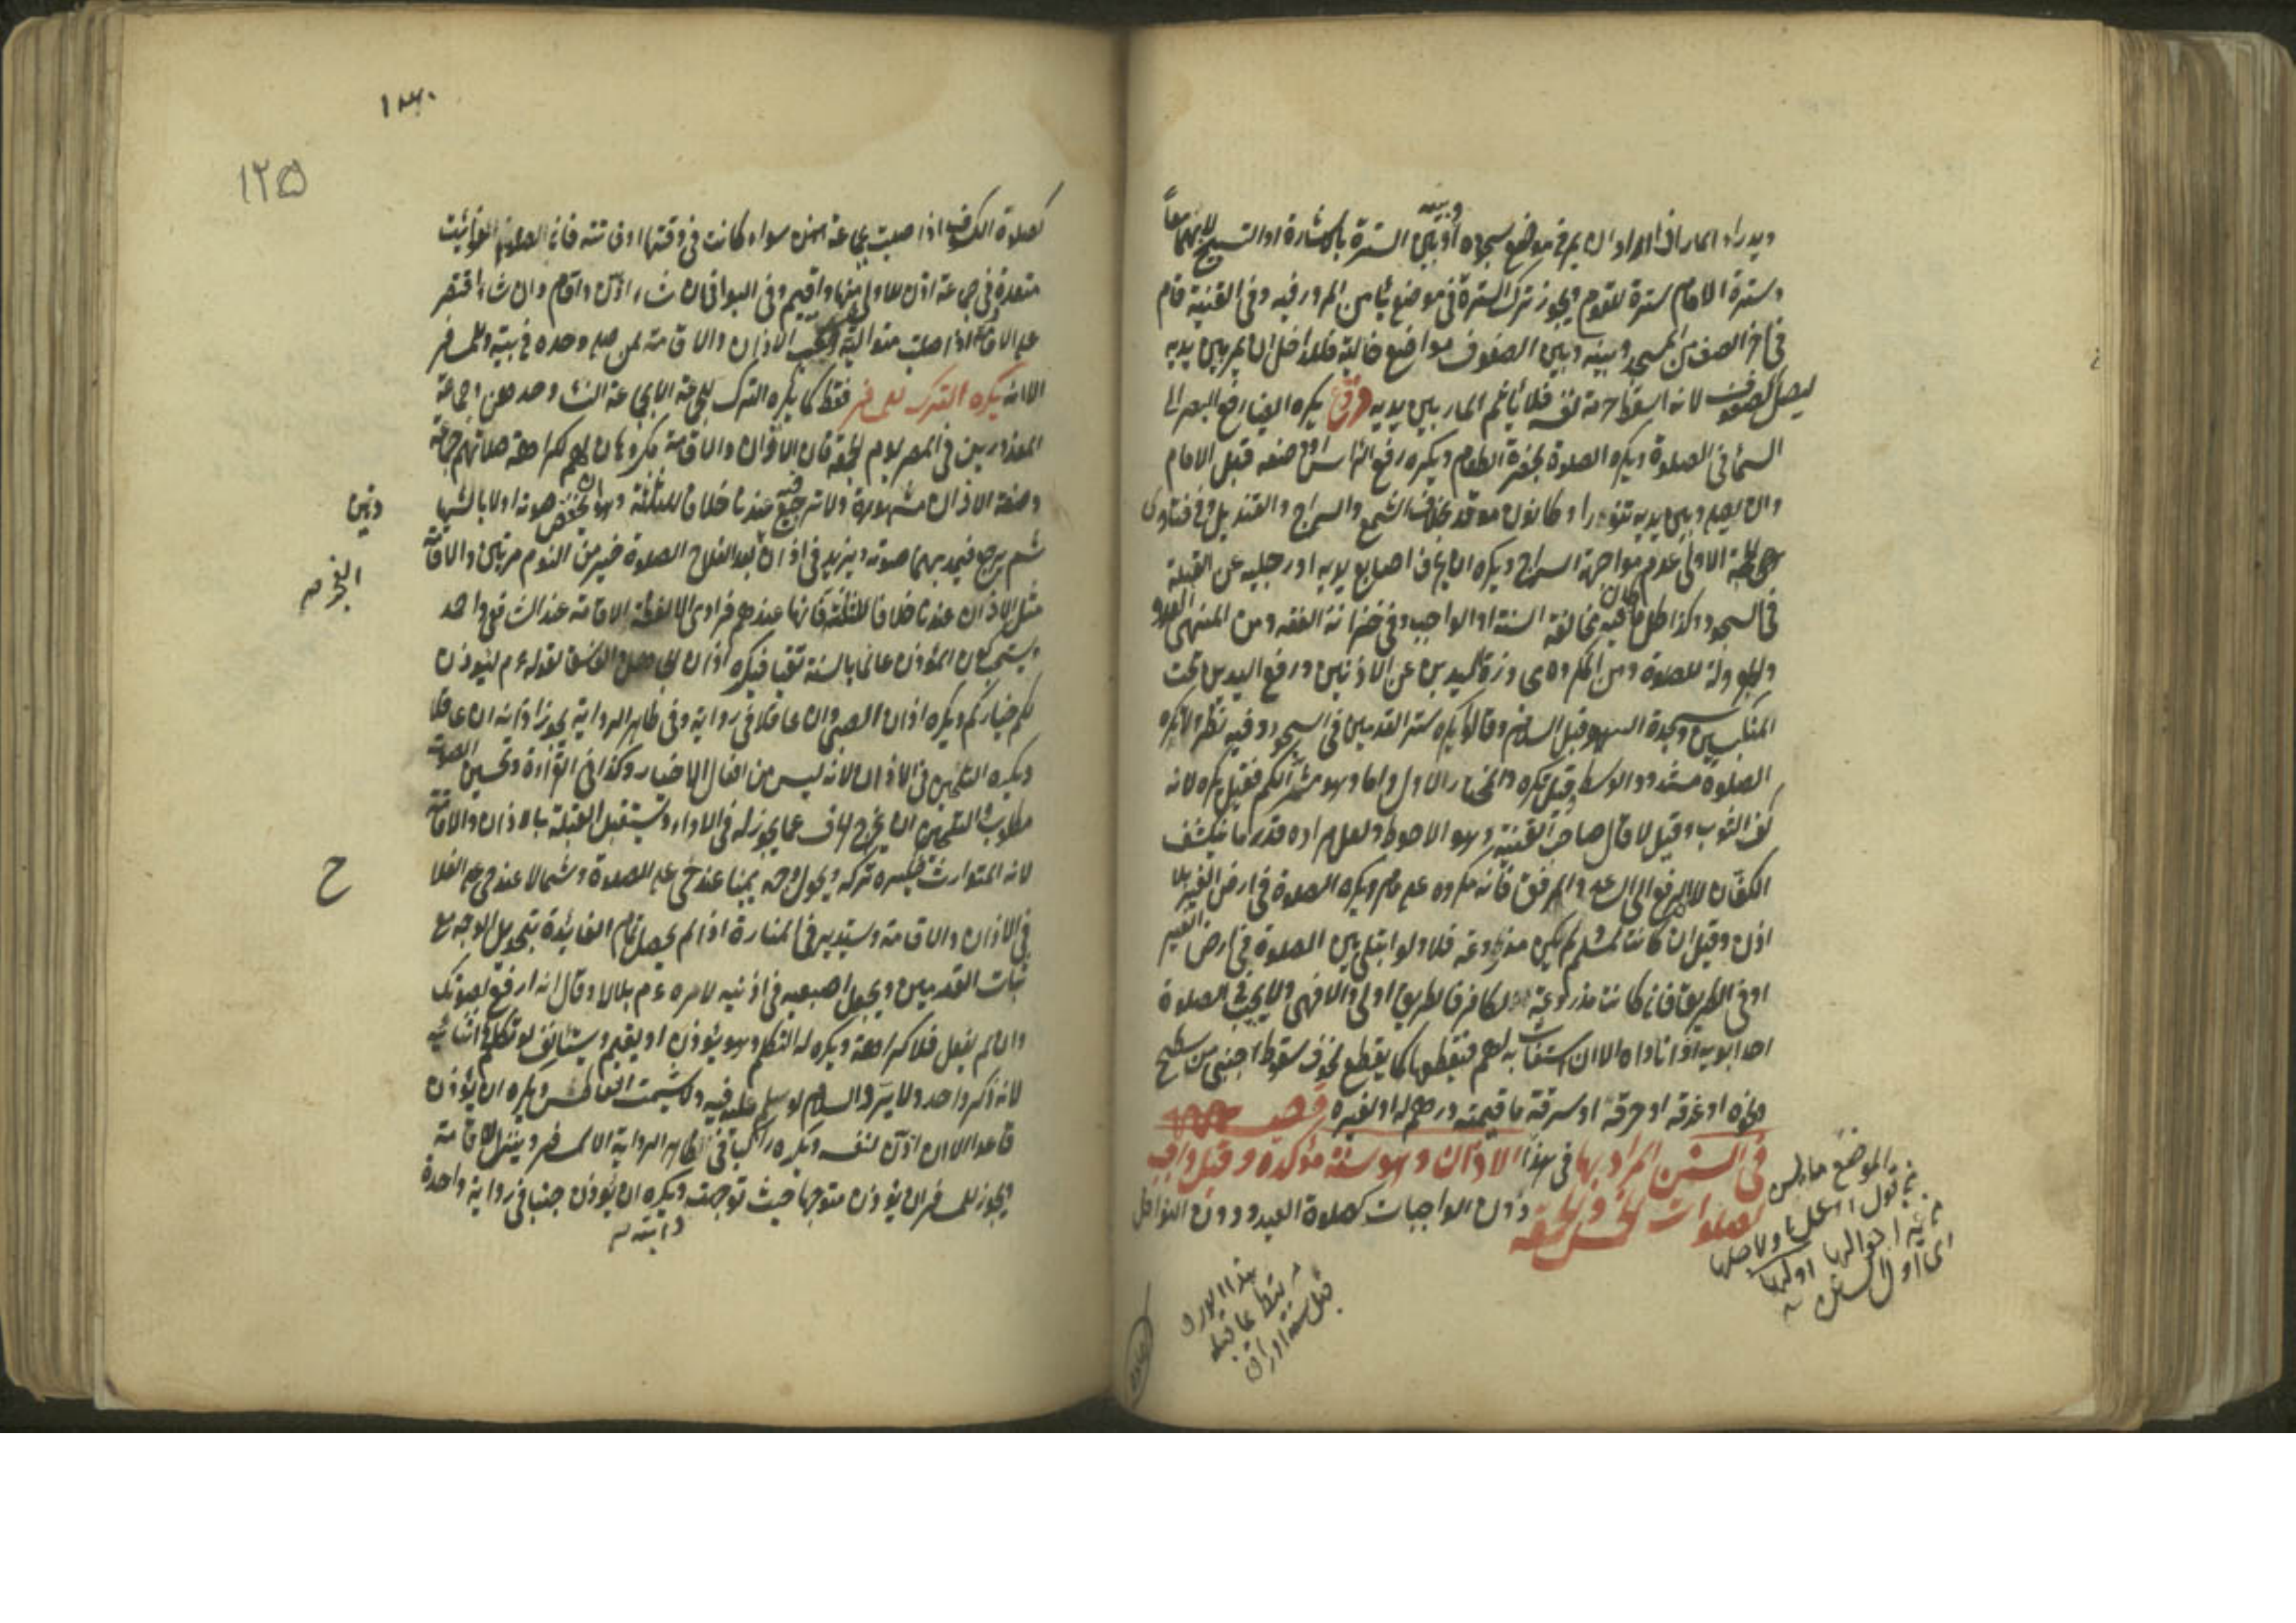 ويدرأ المار اذا اراد ان يمر في موضع سجوده او بين السترة بالاشارة او التسبيح لا بهما معا
وبينه
وسترة الامام سترة للقوم ويجوز ترك السترة في موضع يأمن المرور فيه وفي القنية قام
في آخر الصف من المسجد وبينه وبين الصفوف مواضع خالية فللداخل ان يمر بين يديه
ليصل الصفوف لانه اسقط حرمة نفسه فلا يأثم المار بين يديه يكره ايضا رفع البصر الى
السماء في الصلوة ويكره الصلوة بحضرة الطعام ويكره رفع الرأس او وضعه قبل الامام
وان يصلي وبين يديه تنور او كانون موقد بخلاف الشمع والسراج والقنديل وفي فتاوى
الاولى عدم مواجهة السراج ويكره ان يحرف اصابع يديه او رجليه عن القبلة
في السجود وكذا كل ما فيه مخالفة السنة او الواجب وفي خزانة الفقه ومن المنهي العدو
والهرولة للصلوة ومن المكروه مجاوزة اليدين عن الاذنين ورفع اليدين تحت
المنكبين وسجدة السهو قبل السلام وقالوا يكره ستر القدمين في السجود وفيه نظر ولا يكره
الصلوة مشدود الوسط وقيل يكره والمختار الاول واما وهو مشمر الكم فقيل يكره لانه
كف الثوب وقيل لا قال صاحب القنية وهو الاحوط ولعل مراده قدر ما ينكشف
الكفان لا الرفع الى الساعد والمرفق فانه مكروه على ما مر ويكره الصلوة في ارض الغير بلا
اذن وقيل ان كانت لمسلم ولم يكن مزروعة فلا ولو ابتلي بين الصلوة في ارض الغير
او في الطريق فان كانت مزروعة او لكافر فالطريق اولى والا فهي ولا يجيب في الصلوة
احد ابويه اذا ناداه الا ان استغاث به لمهم فيقطعها كما يقطع لخوف سقوط اجنبي من سطح
او غرقه او حرقه او سرقة ما قيمته درهم له او لغيره فصل
في السنن المراد بها في هذا الاذان وهو سنة مؤكدة وقيل واجب
لصلوات الخمس والجمعة دون الواجبات كصلوة العيد ودون النوافل
١٢٥
كصلوة الكسوف اذا صليت بجماعة سواء كانت في وقتها او فائتة فان الصلوة الفوائت
متعددة في جماعة اذن للاولى منها واقيم وفي البواقي ان شاء اذن واقام وان شاء اقتصر
على الاقامة اذا صليت متوالية ويستحب الاذان والاقامة لمن صلى وحده في بيته وللمسافر
الا انه يكره الترك للمسافر فقط كما يكره الترك للجماعة الا جماعة النساء وحدهن وجماعة
المعذورين في المصر يوم الجمعة فان الاذان والاقامة مكروهان لهم لكراهة صلاتهم جماعة
وصفة الاذان مشهورة ولا ترجيع فيه عندنا خلافا للثلثة وهو ان يخفض صوته اولا بالشها
دتين
ثم يرجع فيمد بهما صوته ويزيد في اذان الفجر بعد الفلاح الصلوة خير من النوم مرتين والاقامة
مثل الاذان عندنا خلافا للثلثة فانها عندهم فرادى الا لفظة الاقامة عند الشافعي واحمد
ويستحب كون المؤذن عالما بالسنة تقيا فيكره اذان الجاهل والفاسق لقوله ع م ليؤذن
لكم خياركم ويكره اذان الصبي وان عاقلا في رواية وفي ظاهر الرواية يجوز اذانه ان عاقلا
ويكره التلحين في الاذان لانه ليس من افعال الاخيار وكذا في القراءة وتحسين الصوت
مطلوب والتلحين ان يخرج الحرف عما يجوز له في الاداء ويستقبل القبلة بالاذان والاقامة
لانه المتوارث فيكره تركه ويحول وجهه يمينا عند حي على الصلوة وشمالا عند حي على الفلا
ح
في الاذان والاقامة ويستدير في المنارة اذا لم يحصل تمام الفائدة بتحويل الوجه مع
ثبات القدمين ويجعل اصبعيه في اذنيه لامره ع م بلالا وقال انه ارفع لصوتك
وان لم يفعل فلا كراهة ويكره له التكلم وهو يؤذن او يقيم ويستأنف لو تكلم في اثنائه
لانه ذكر واحد ولا يرد السلام لو سلم عليه فيه ولا يشمت العاطس ويكره ان يؤذن
قاعدا الا ان اذن لنفسه ويكره راكبا في ظاهر الرواية الا للمسافر وينزل للاقامة
ويجوز للمسافر ان يؤذن متوجها حيث توجهت دابته ويكره ان يؤذن جنبا في رواية واحدة